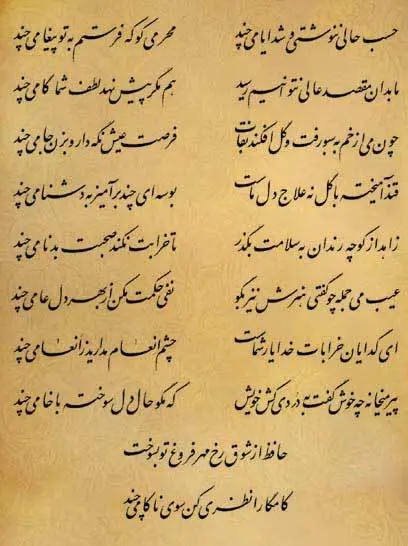 حسب حالی ننوشتی و شد ایامی چند محرمی کو که فرستم به تو پیغامی چند
ما بدان مقصد عالی نتوانیم رسید هم مگر پیش نهد لطف شما گامی چند
چون می از خم به سبو رفت و گل افکند نقاب فرصت عیش نگه دار و بزن جامی چند
قند آمیخته با گل نه علاج دل ماست بوسه ای چند برآمیز به دشنامی چند
زاهد از کوچه رندان به سلامت بگذر تا خرابت نکند صحبت بدنامی چند
عیب می جمله چو گفتی هنرش نیز بگو نفی حکمت مکن از بهر دل عامی چند
ای گدایان خرابات خدا یار شماست چشم انعام مدارید ز انعامی چند
پیر میخانه چه خوش گفت به دردی کش خویش که مگو حال دل سوخته با خامی چند
حافظ از شوق رخ مهر فروغ تو بسوخت
کامگارا نظری کن سوی ناکامی چند